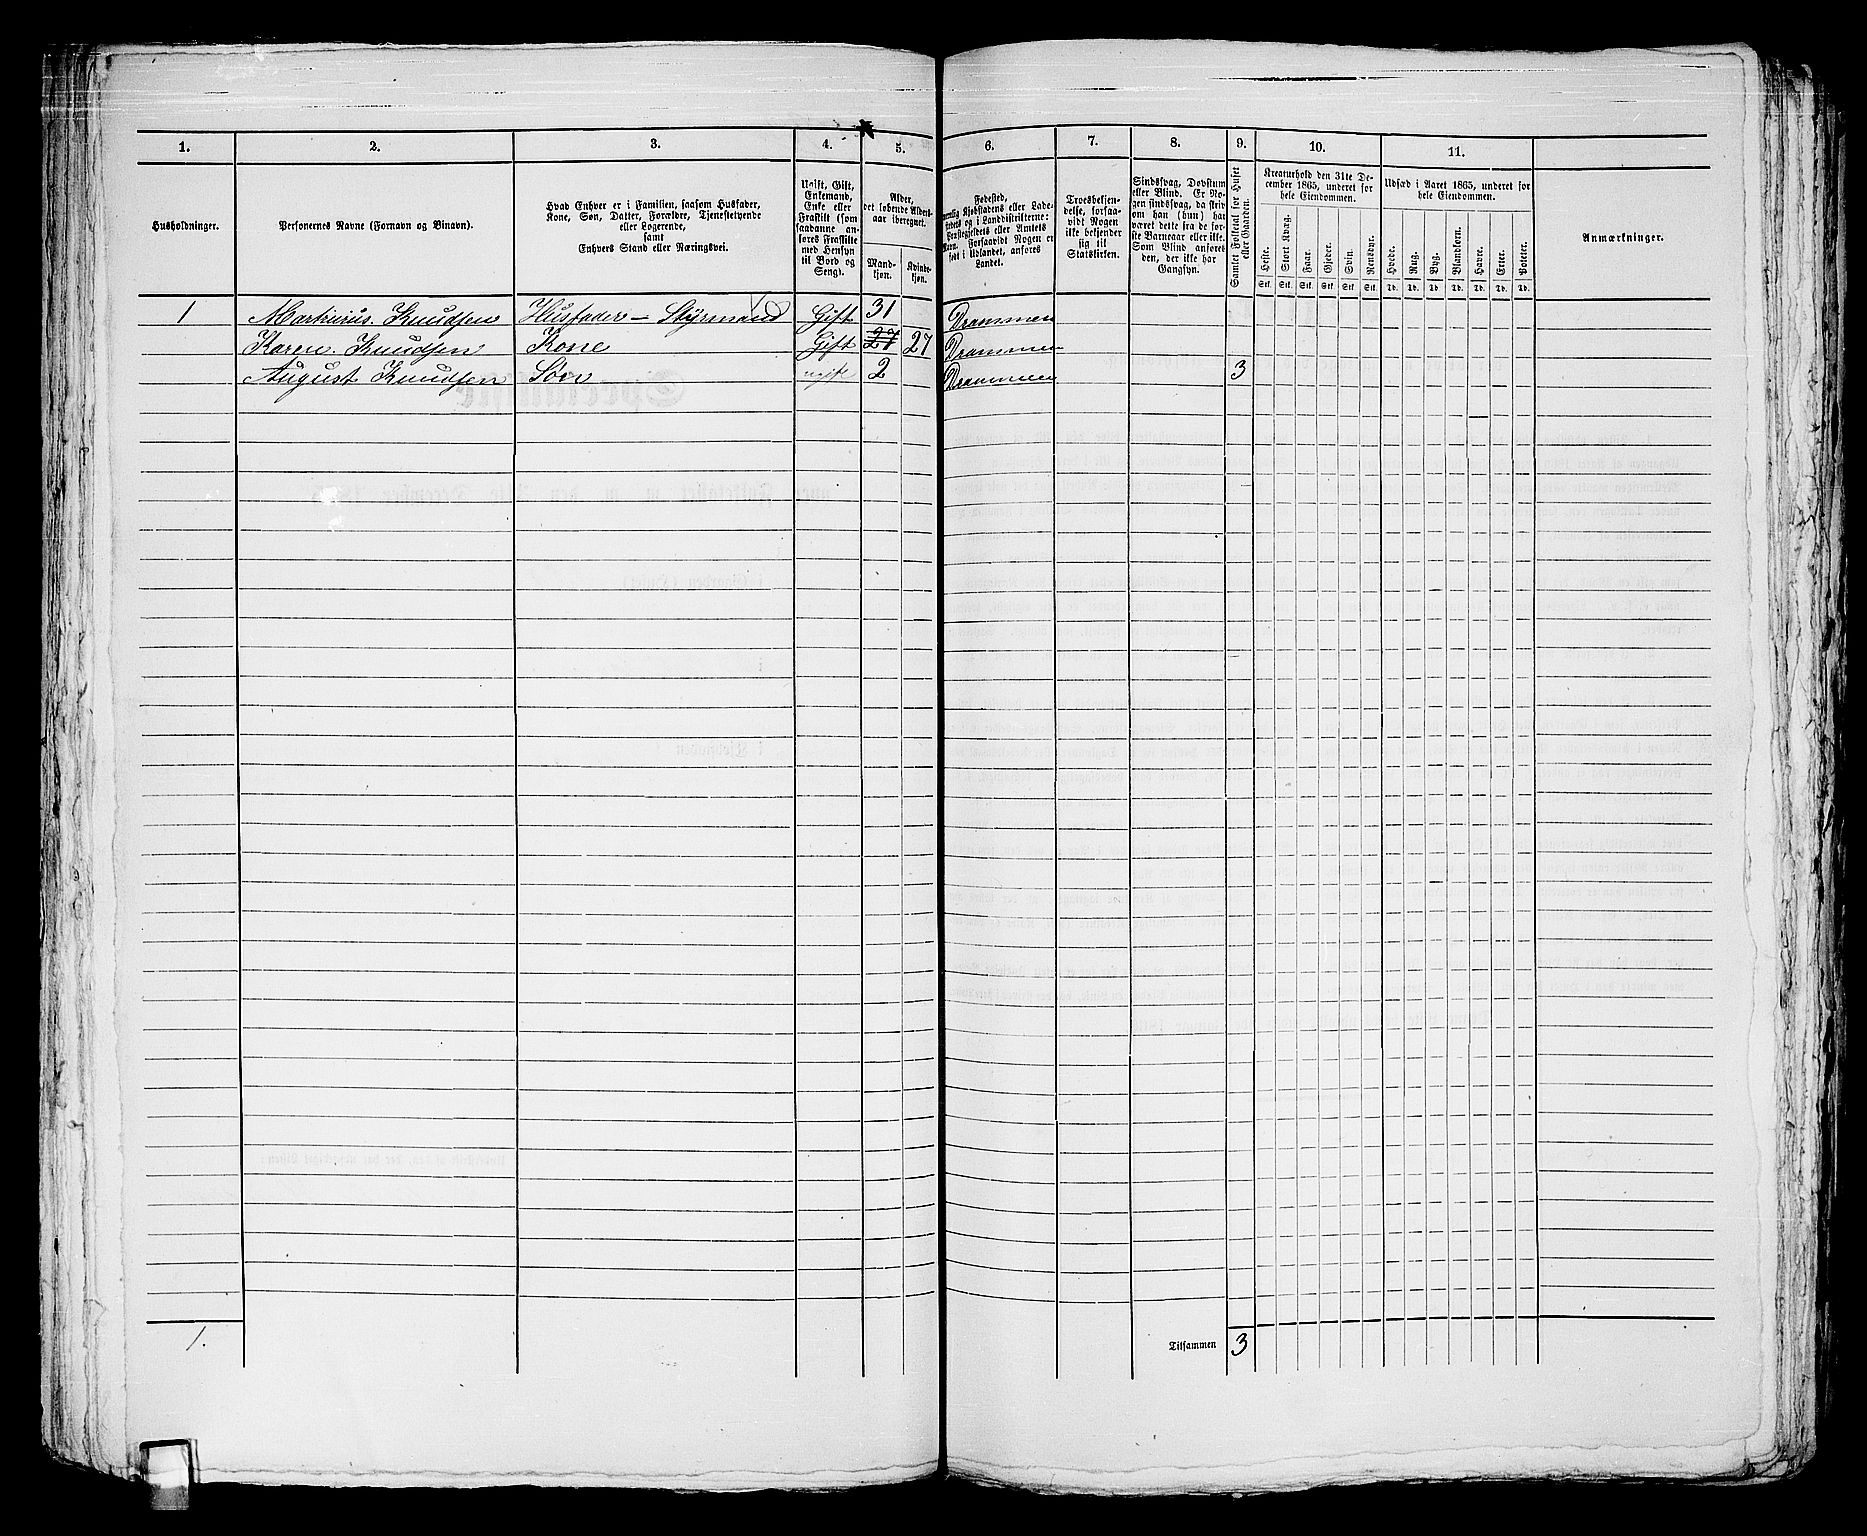 1. 2. 3. 4. 5. 6. 7. 8. 9. 10. 11.
Husholdninger.
Personernes Navne (Fornavn og Binavn).
Hvad Enhver er i Familien, saasom Husfader,
Kone, Søn, Datter, Forældre, Tjenestetyende
eller Logerende,
samt
Enhvers Stand eller Næringsvei.
Ugift, Gift,
Enkemand,
Enke eller
Fraskilt (som
saadanne an-
føres Fraskilte
med Hensyn
til Bord og
Seng).
Alder,
det løbende Alders-
aar iberegnet.
Mand-
kjøn.
Kvinde-
kjøn.
Fødested,
nemlig Kjøbstadens eller Lade-
stedets og i Landdistrikterne:
Præstegjeldets eller Amtets
Navn. Forsaavidt Nogen er
født i Udlandet, anføres
Landet.
Troesbekjen-
delse, forsaa-
vidt Nogen
ikke bekjender
sig til
Statskirken.
Sindssvag, Døvstum
eller Blind. Er No-
gen sindssvag, da skri-
ves om han (hun) har
været dette fra de før-
ste Barneaar eller ikke.
Som Blind anføres
den, der ikke har
Gangsyn.
Samlet Folketal for Huset
eller Gaarden.
Kreaturhold den 31te De-
cember 1865, underet for
hele Eiendommen.
Heste. Stort Kvæg. Faar. Gjeder. Svin. Rensdyr.
Stk. Stk. Stk. Stk. Stk. Stk.
Udsæd i Aaret 1865, underet for
hele Eiendommen.
Hvede. Rug. Byg. Blandkorn. Havre. Erter. Poteter.
Td. Td. Td. Td. Td. Td. Td.
Anmærkninger.
1 Markurus. Knudsen Husfader - Styrmand Gift 31 Drammen
Karen. Knudsen Kone Gift 27 27 Drammen
August Knudsen Søn ugift 2 Drammen 3
1. Tilsammen 3